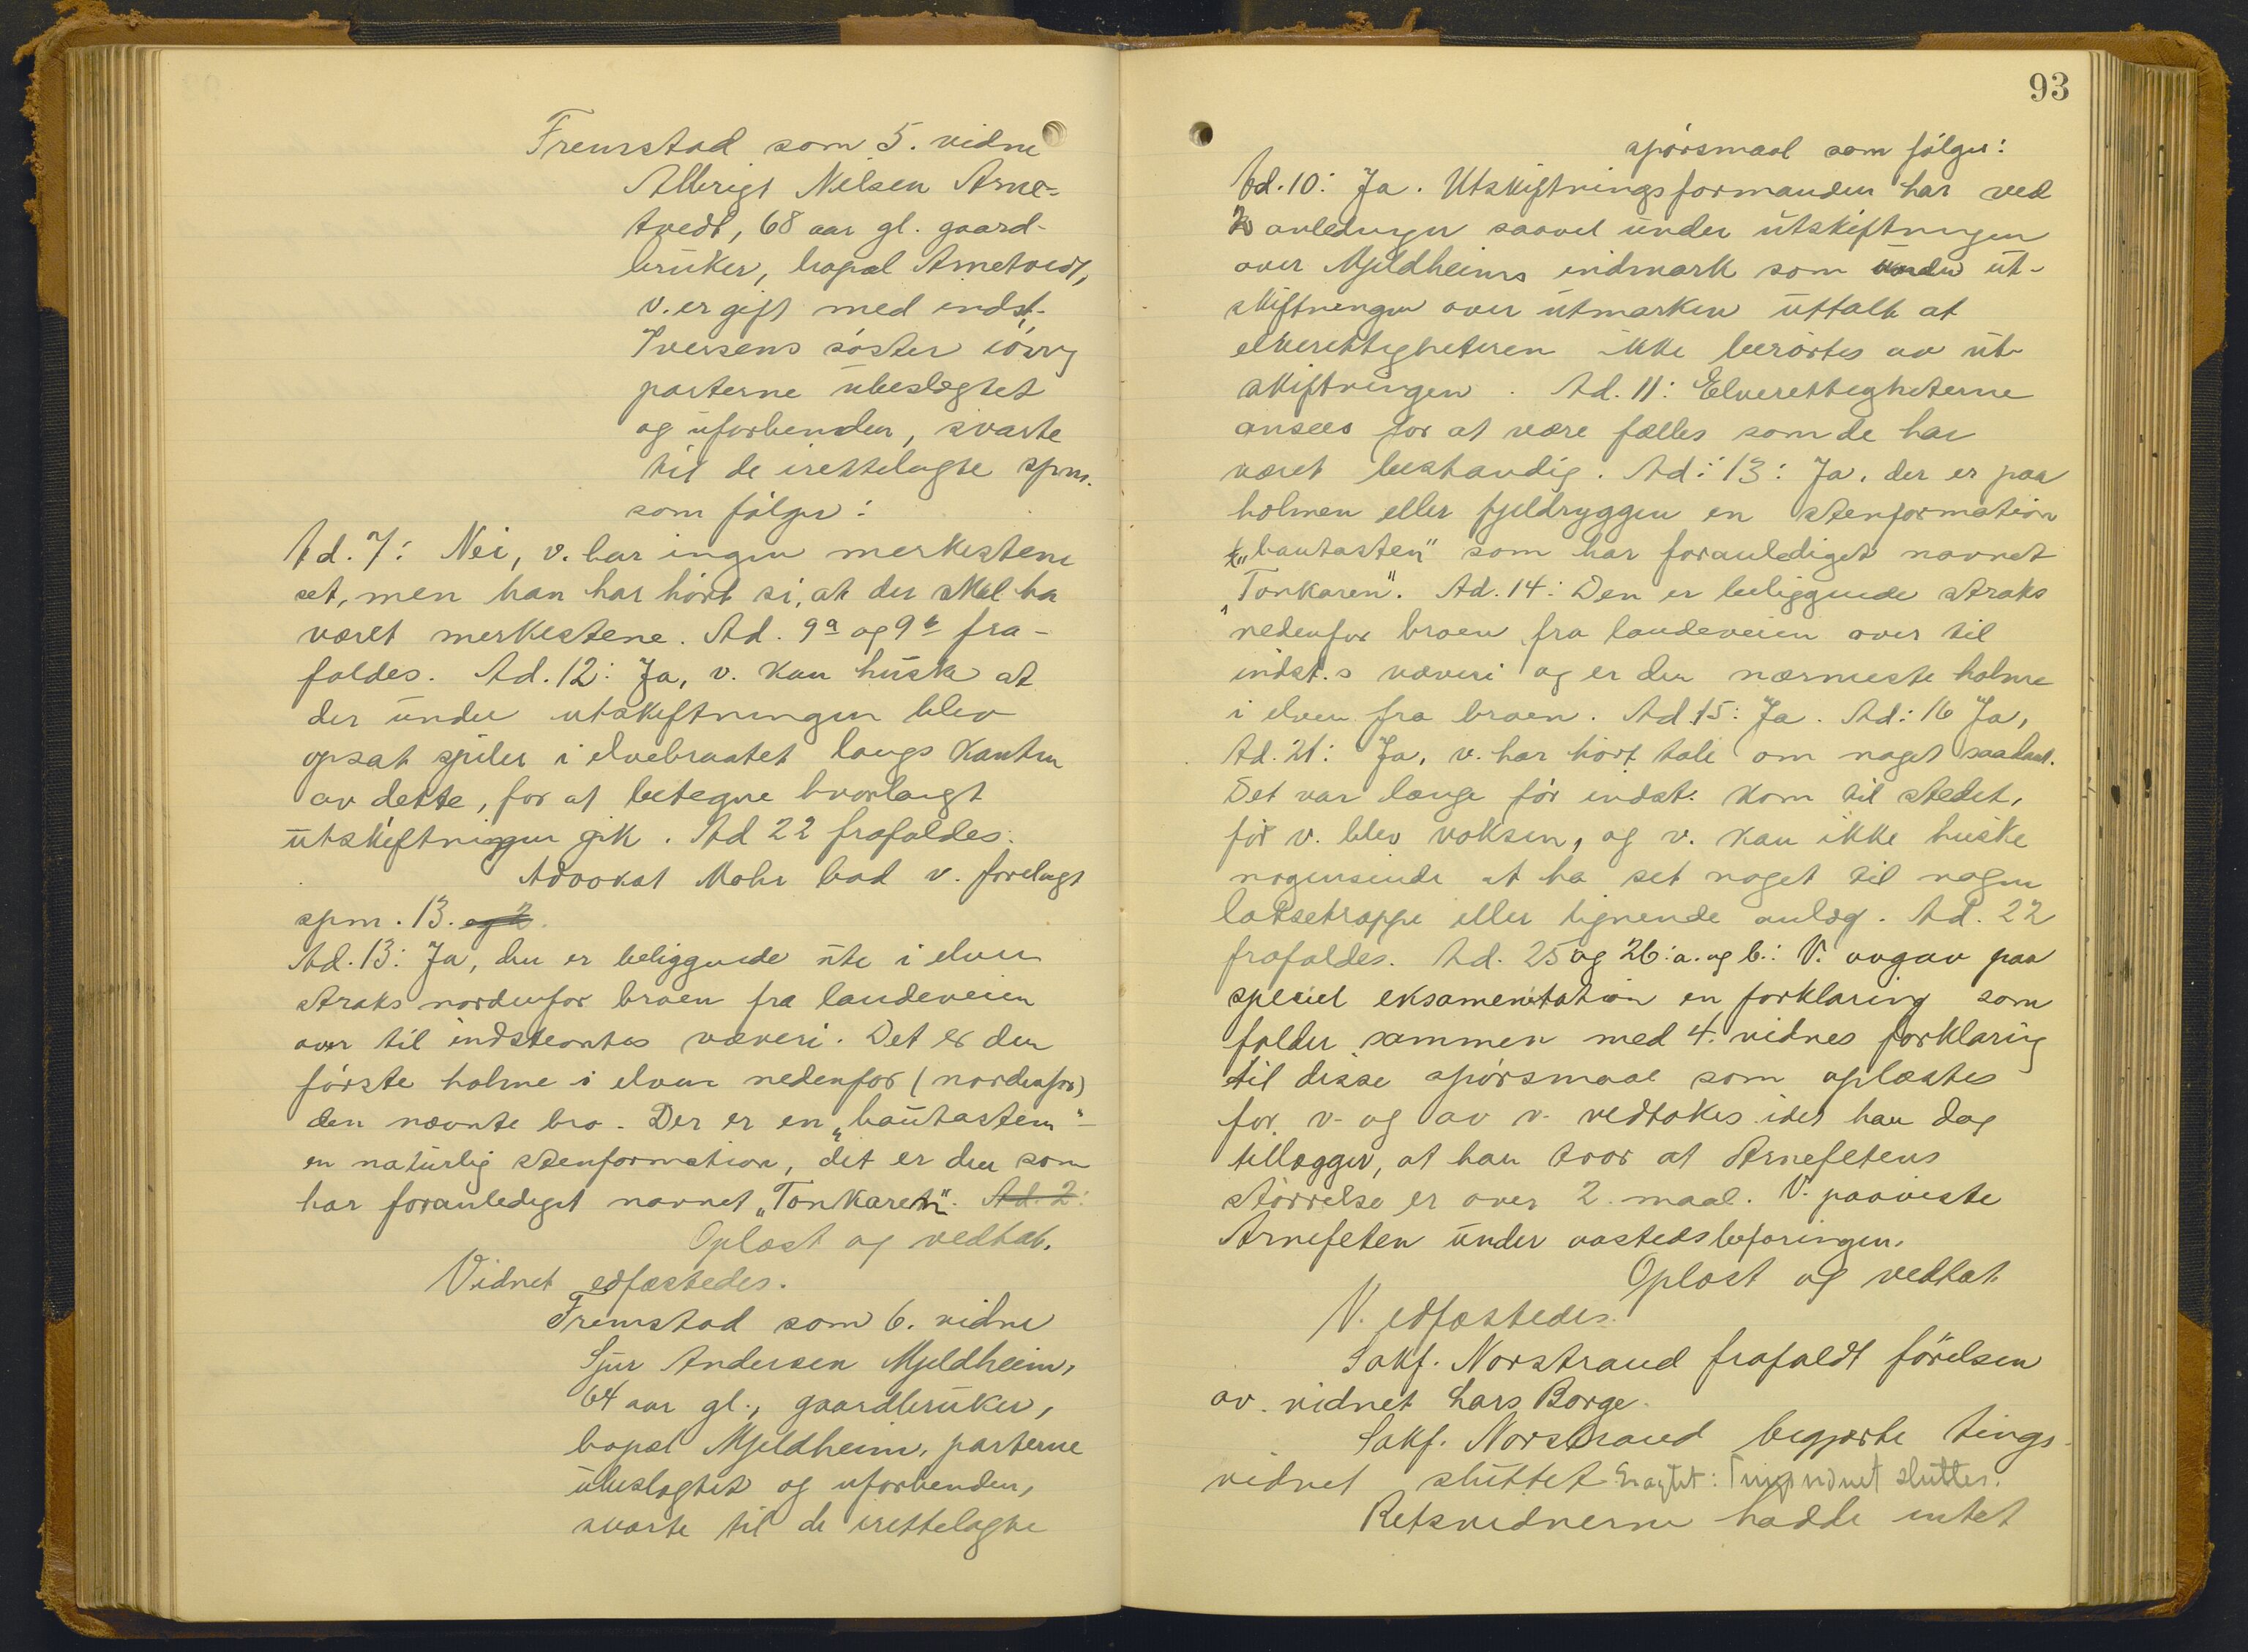 Fremstod som 5. vidne
Albrigt Nilsen Arne-
tvedt, 68 aar gl. gaard-
bruker, bopæl Arnetvedt,
v. er gift med indst.
Iversens søster iøvrig
parterne ubeslegtet
og uforbunden, svarte
til de irettelagte spm.
som følger:
Ad. 7: Nei, v. har ingen merkestene
set, men han har hørt si, at der skal ha
været merkestene. Ad. 9a og 9b fra-
faldes. Ad. 12: Ja, v. kan huske at
der under utskiftningen blev
opsat spiler i elvebraatet langs kanten
av dette, for at betegne hvorlangt
utskiftningen gik. Ad 22 frafaldes.
Advokat Mohr bad v. forelagt
spm. 13. og 2.
Ad. 13: Ja, den er beliggende ute i elven
straks nordenfor broen fra landeveien
over til indstevntes væveri. Det er den
første holme i elven nedenfor (nordenfor)
den nævnte bro. Der er en „bautasten"-
en naturlig stenformation, det er den som
har foranlediget navnet „Tonkaren". Ad. 2:
Oplæst og vedtat.
Vidnet edfæstedes.
Fremstod som 6. vidne
Sjur Andersen Mjeldheim,
64 aar gl., gaardbruker,
bopæl Mjeldheim, parterne
ubeslegtet og uforbunden,
svarte til de irettelagte
93
spørsmaal som følger:
Ad. 10: Ja. Utskiftningsformanden har ved
2 anledninger saavel under utskiftningen
over Mjeldheims indmark som under ut-
skiftningen over utmarken uttalt at
elverettigheteren ikke berørtes av ut-
skiftningen. Ad. 11: Elverettigheterne
ansees for at være fælles som de har
været bestandig. Ad: 13: Ja, der er paa
holmen eller fjeldryggen en stenformation
„bautasten" som har foranlediget navnet
„Tonkaren". Ad. 14: Den er beliggende straks
nedenfor broen fra landeveien over til
indst.s væveri og er den nærmeste holme
i elven fra broen. Ad 15: Ja. Ad: 16 Ja,
Ad. 21: Ja, v. har hørt tale om noget saadant.
Det var længe før indst. kom til stedet,
før v. blev voksen, og v. kan ikke huske
nogensinde at ha set noget til nogen
laksetrappe eller lignende anlæg. Ad. 22
frafaldes. Ad. 25 og 26: a. og b.: V. avgav paa
speciel eksamenitation en forklaring som
falder sammen med 4. vidnes forklaring
til disse spørsmaal som oplæstes
for v. og av v. vedtokes idet han dog
tillægger, at han tror at Arnefetens
størrelse er over 2 maal. V. paaviste
Arnefeten under aastedsbefaringen.
Oplæst og vedtat
V. edfæstedes.
Sakf. Norstrand frafaldt førelsen
av vidnet Lars Borge.
Sakf. Norstrand begjærte tings-
vidnet sluttet. Eragtet: Tingsvidnet sluttes.
Retsvidnerne hadde intet